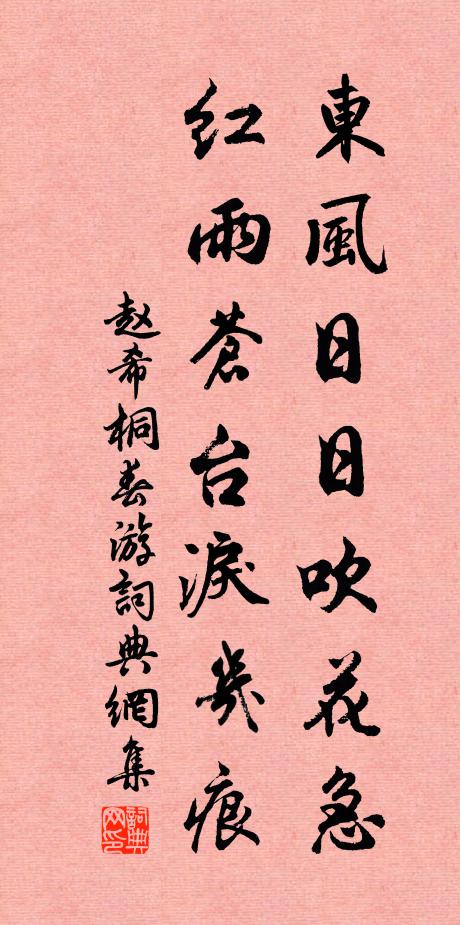 東風日日吹花急
紅雨蒼台淚幾痕
赵希桐春游詞典網集
詞典网印